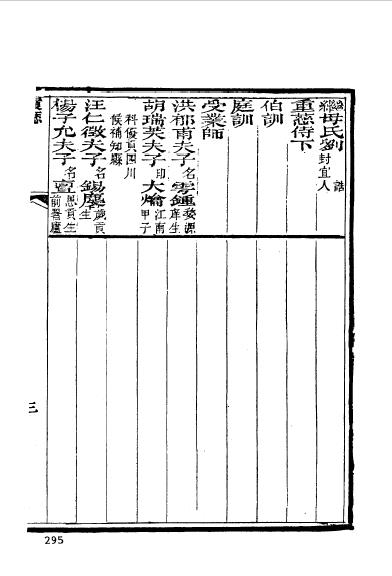 繼母氏劉誥封宜人
重慈侍下
伯訓
庭訓
受業師
洪郁甫夫子名雰鍾婺源庠生
胡瑞芙夫子印大㷍江南甲子
科優貢四川候補知縣
汪仁徵夫子名錫麐歲貢生
楊子允夫子名亶恩貢生前署廬
三
295